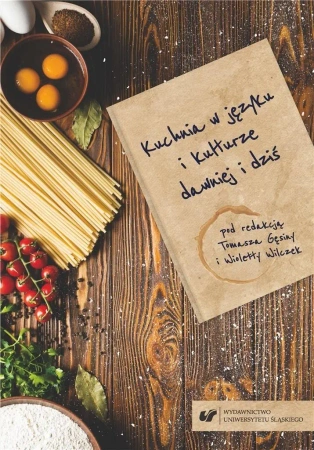 Kuchnia w języku
i kulturze
dawniej i dziś
pod redakcją
Tomasza Gęsiny
i Wioletty Wilczek
WYDAWNICTWO
UNIWERSYTETU ŚLĄSKIEGO